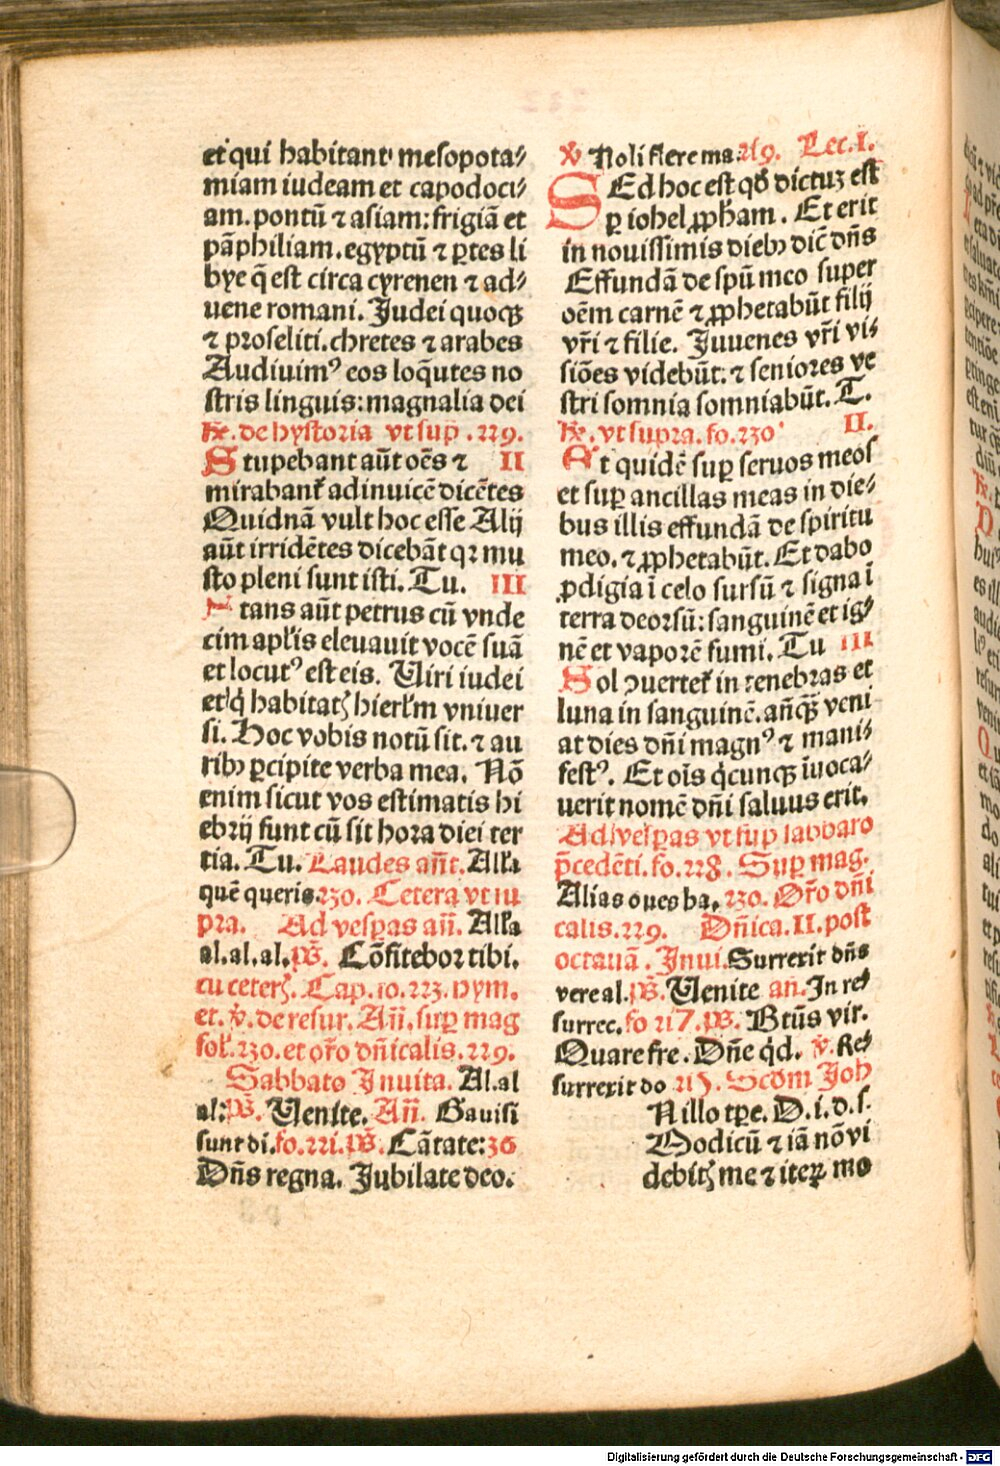 et qui habitant mesopota⸗
miam iudeam et capodoci⸗
am. pontū ⁊ asiam: frigiā et
pāphiliam. egyptū ⁊ ꝑtes li
bye q̄ est circa cyrenen ⁊ ad⸗
uene romani. Judei quoqꝫ
⁊ proseliti. chretes ⁊ arabes
Audiuimꝰ eos loq̄utes no
stris linguis: magnalia dei
℞. de hystoria vt sup̄. 229.
Stupebant aūt oēs ⁊ II
mirabant̄ adinuicē dicētes
Quidnā vult hoc esse Alij
aūt irridētes dicebāt qꝛ mu
sto pleni sunt isti. Tu. III
Stans aūt petrus cū vnde
cim apłis eleuauit vocē suā
et locutꝰ est eis. Uiri iudei
et q̇ habitatꝭ hierłm vniuer
si. Hoc vobis notū sit. ⁊ au
ribꝫ ꝑcipite verba mea. Nō
enim sicut vos estimatis hi
ebrij sunt cū sit hora diei ter
tia. Tu. Laudes añt. Alła
quē queris. 230. Cetera vt su
pra. Ad vesꝑas añ. Alła
al. al. al. p̄s. Cōfitebor tibi.
cū ceterꝭ. Cap. fo. 223. hym.
et. ꝟ. de resur. Añ. suꝑ mag
foł. 230. et oŕo dñicalis. 229.
Sabbato Inuita. Al. al
al: p̄s. Uenite. Añ. Gauisi
sunt di. fo. 221. p̄s. Cātate: 36
Dñs regna. Jubilate deo.
ꝟ Noli flere ma. 219. Lec. I.
SEd hoc est qđ dictuꝫ est
ꝑ iohel ꝓpħam. Et erit
in nouissimis diebꝫ dic̄ dñs
Effundā de spū meo super
oēm carnē ⁊ ꝓphetabūt filij
vr̄i ⁊ filie. Juuenes vr̄i vi⸗
siōes videbūt: ⁊ seniores ve
stri somnia somniabūt. T.
℞. vt supra. fo. 230 II.
Et quidē suꝑ seruos meos
et suꝑ ancillas meas in die⸗
bus illis effundā de spiritu
meo. ⁊ ꝓphetabūt. Et dabo
ꝓdigia ī celo sursū ⁊ signa ī
terra deorsū: sanguinē et ig⸗
nē et vaporē fumi. Tu III
Sol ↄuertet̄ in tenebras et
luna in sanguinē. añqꝫ veni
at dies dñi magnꝰ ⁊ mani⸗
festꝰ. Et oīs q̇cunqꝫ īuoca⸗
uerit nomē dñi saluus erit.
Ad vesꝑas vt sup̄ sabbato
p̄cedēti. fo. 228. Suꝑ mag.
Alias oues ha. 230. Oŕo dñi
calis. 229. Dñica. II. post
octauā. Inui. Surrexit dñs
vere al. p̄s. Uenite añ. In re⸗
surrec. fo 217. p̄s. Btūs vir.
Quare fre. Dñe q̇d. ꝟ. Re⸗
surrexit do 215. Scđm Joh
N illo tꝑe. D. i. d. s.
Modicū ⁊ iā nō vi
debitꝭ me ⁊ iteꝝ mo